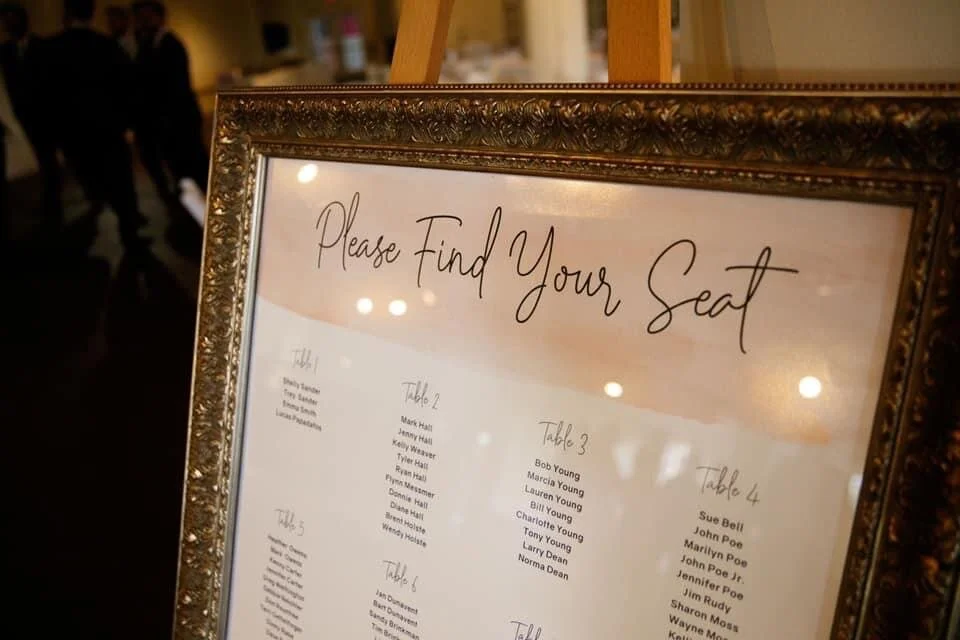 Please Find Your Seat
Table 1
Shelly Sander
Trey Sander
Emma Smith
Lucas Papadahis
Table 2
Mark Hall
Jenny Hall
Kelly Weaver
Tyler Hall
Ryan Hall
Flynn Messmer
Donnie Hall
Diane Hall
Brent Holste
Wendy Holste
Table 3
Bob Young
Marcia Young
Lauren Young
Bill Young
Charlotte Young
Tony Young
Larry Dean
Norma Dean
Table 4
Sue Bell
John Poe
Marilyn Poe
John Poe Jr.
Jennifer Poe
Jim Rudy
Sharon Moss
Wayne
Table 5
Heather Owens
Mark Owens
Kenny Carter
Jennifer Carter
Table 6
Jan Dunavent
Bart Dunavent
Sandy Brinkman
Tim
Table